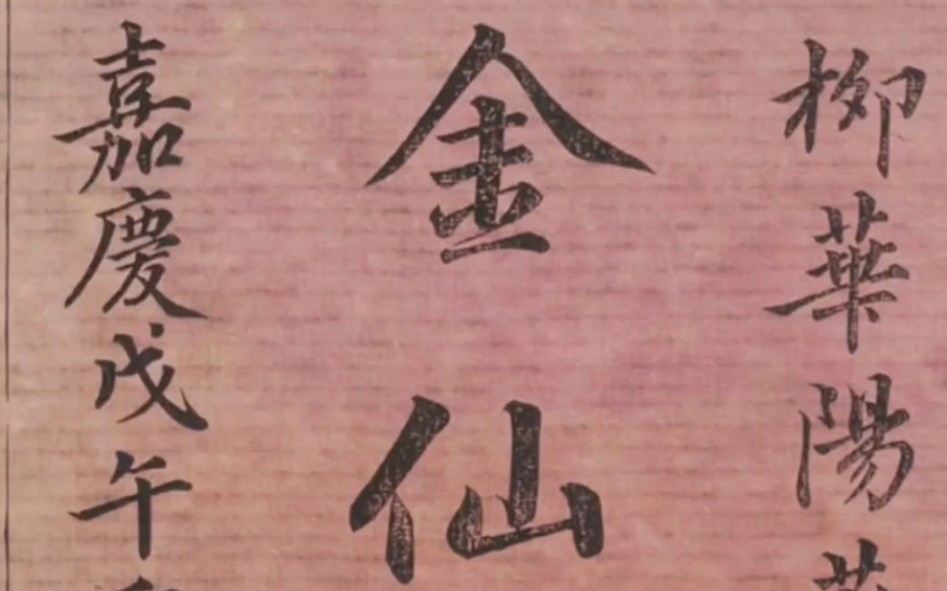 柳華陽
金仙
嘉慶戊午